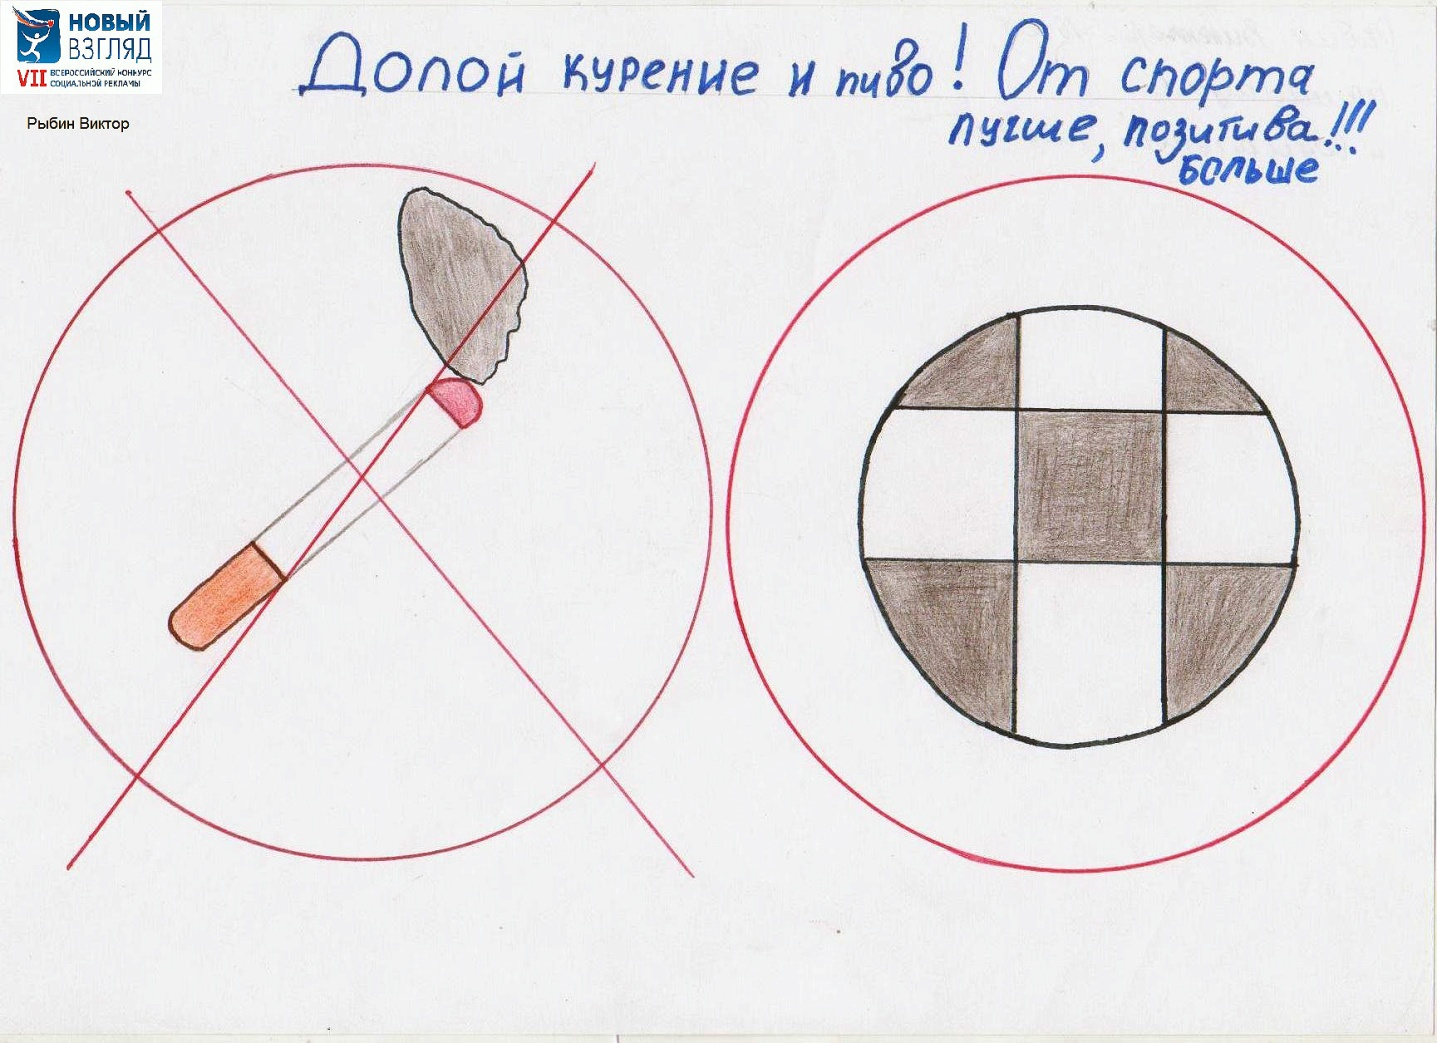 НОВЫЙ
ВЗГЛЯД
VII ВСЕРОССИЙСКИЙ КОНКУРС
СОЦИАЛЬНОЙ РЕКЛАМЫ
Рыбин Виктор
Долой курение и пиво! От спорта
лучше, позитива!!!
больше